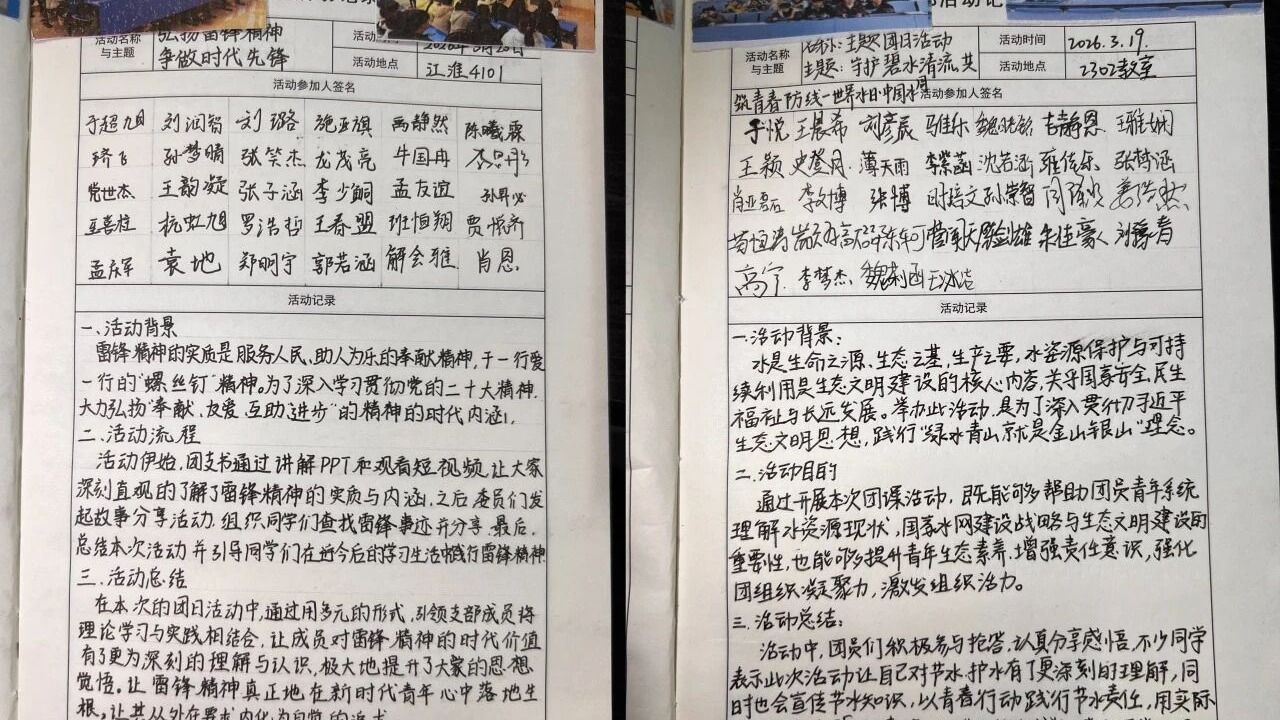 活动名称
与主题
弘扬雷锋精神
争做时代先锋
活动地点
江淮4101
活动参加人签名
于超旭 刘润智 刘璐 施亚旗 禹静然 陈曦霖
孙梦晴 张笑杰 龙茂亮 牛国冉
党世杰 王韵凝 张子涵 李少嗣 孟友谊
杭虹旭 罗浩哲 王春盟 班恒翔 贾悦齐
孟庆军 袁地 郑明宇 郭若涵 解会雅 肖恩
活动记录
一、活动背景
雷锋精神的实质是服务人民,助人为乐的奉献精神,干一行爱
一行的"螺丝钉"精神。为了深入学习贯彻党的二十大精神.
大力弘扬"奉献、友爱、互助、进步"的精神的时代内涵。
二、活动流程
活动伊始,团支书通过讲解PPT和观看短视频,让大家
深刻直观的了解了雷锋精神的实质与内涵,之后委员们发
起故事分享活动,组织同学们查找雷锋事迹并分享.最后,
总结本次活动并引导同学们在今后的学习生活中践行雷锋精神
三、活动总结
在本次的团日活动中,通过用多元的形式,引领支部成员将
理论学习与实践相结合,让成员对雷锋精神的时代价值
有了更为深刻的理解与认识,极大地提升了大家的思想
觉悟。让雷锋精神真正地在新时代青年心中落地生
根,让其从外在要求内化为自觉的追求
活动记
活动名称
与主题
主题团日活动
主题:守护碧水清流,共
筑青春防线—世界水日中国水周
活动时间
2026.3.19.
活动地点
2302教室
活动参加人签名
于悦 王晨希 刘彦辰 马佳乐 吉静恩 王雅娴
王颖 史登月 薄天雨 李紫菡 沈若涵 雍佳乐 张梦涵
肖亚磊 李文博 张博 时培文 孙崇智
朱佳豪 刘馨春
高宁 李梦杰
活动记录
一.活动背景:
水是生命之源、生态之基、生产之要,水资源保护与可持
续利用是生态文明建设的核心内容,关乎国家安全,民生
福祉与长远发展。举办此活动,是为了深入贯彻习近平
生态文明思想,践行"绿水青山就是金山银山"理念。
二.活动目的
通过开展本次团课活动,既能够帮助团员青年系统
理解水资源现状,国家水网建设战略与生态文明建设的
重要性,也能够提升青年生态素养,增强责任意识,强化
团组织凝聚力,激发组织活力。
三.活动总结:
活动中,团员们积极参与抢答,认真分享感悟,不少同学
表示此次活动让自己对节水护水有了更深刻的理解,同
时也会宣传节水知识,以青春行动践行节水责任,用实际